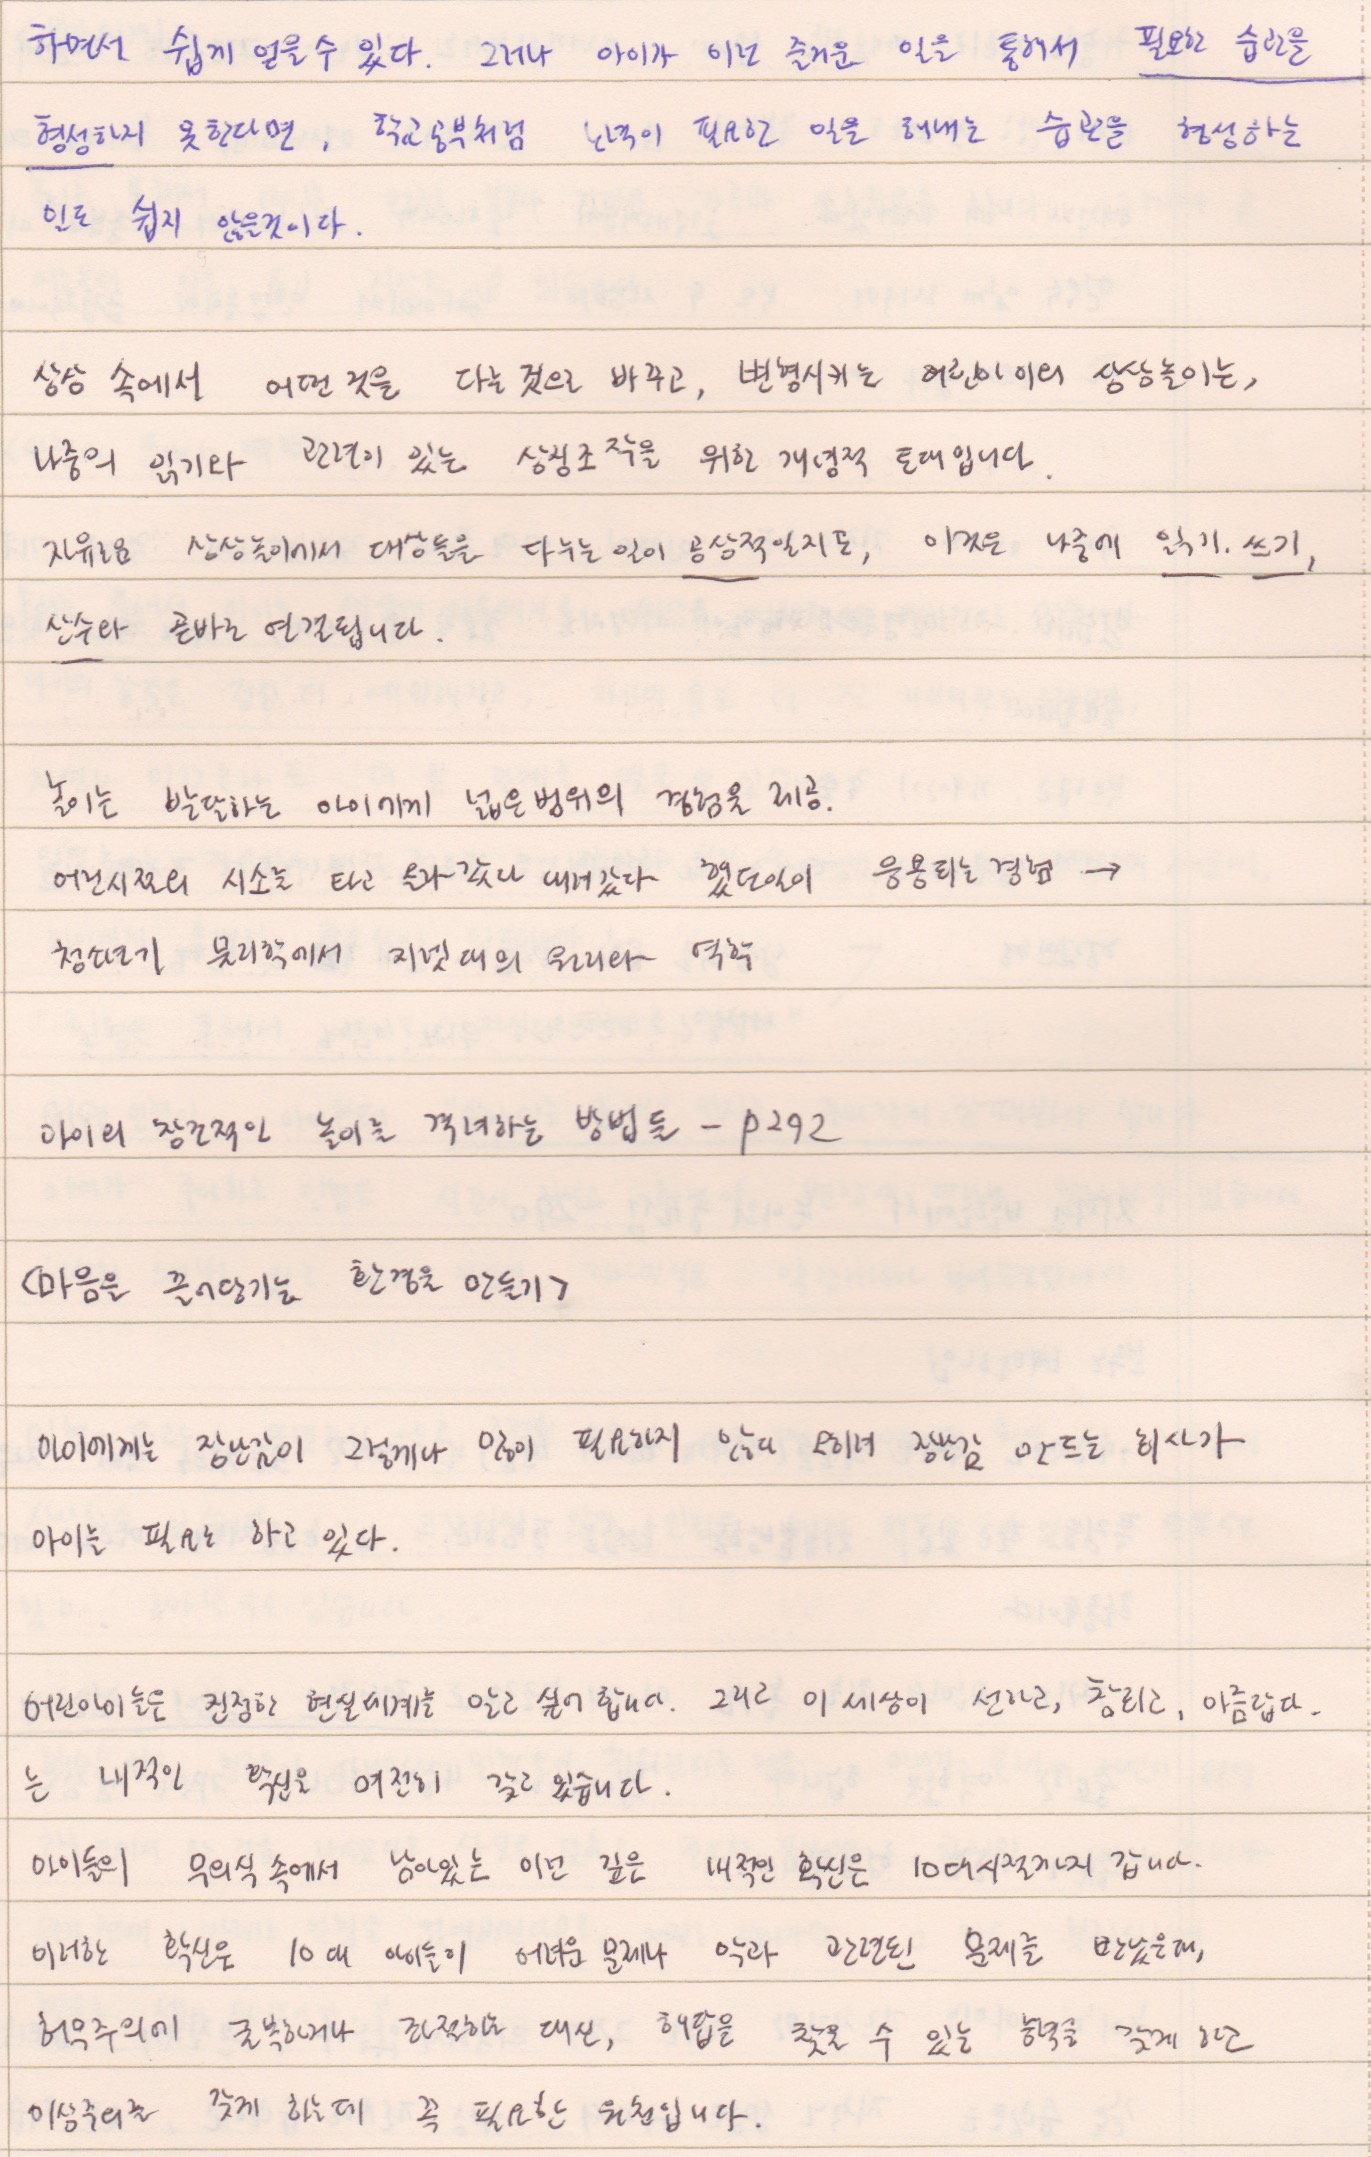 하면서 쉽게 얻을 수 있다. 그러나 아이가 이런 즐거운 일을 통해서 필요한 습관을
형성하지 못한다면, 학교공부처럼 노력이 필요한 일을 해내는 습관을 형성하는
일도 쉽지 않을것이다.
상상 속에서 어떤 것을 다른 것으로 바꾸고, 변형시키는 어린아이의 상상놀이는,
나중의 읽기와 관련이 있는 상징조작을 위한 개념적 토대입니다.
자유로운 상상놀이에서 대상들을 다루는 일이 공상적일지도, 이것은 나중에 읽기. 쓰기,
산수와 곧바로 연결됩니다.
놀이는 발달하는 아이에게 넓은범위의 경험을 제공.
어린시절의 시소를 타고 올라갔다 내려갔다 했던일이 응용되는 경험 →
청소년기 물리학에서 지렛대의 원리와 역학
아이의 창조적인 놀이를 격려하는 방법들 - p292
<마음을 끌어당기는 환경을 만들기>
아이에게는 장난감이 그렇게나 많이 필요하지 않다 오히려 장난감 만드는 회사가
아이를 필요로 하고 있다.
어린아이들은 진정한 현실세계를 알고 싶어 합니다. 그리고 이 세상이 선하고, 참되고, 아름답다.
는 내적인 확신을 여전히 갖고 있습니다.
아이들의 무의식 속에서 남아있는 이런 깊은 내적인 확신은 10대시절까지 갑니다.
이러한 확신은 10대 아이들이 어려운 문제나 악과 관련된 문제를 만났을때,
허무주의에 굴복하거나 좌절하는 대신, 해답을 찾을 수 있는 힘을 갖게 하고
이상주의를 갖게 하는데 꼭 필요한 원천입니다.